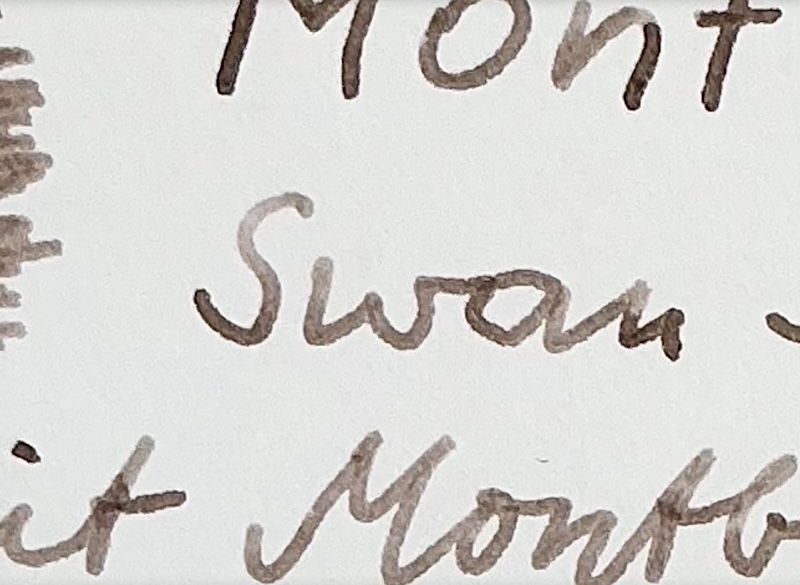 Mont
Swan
it Montb